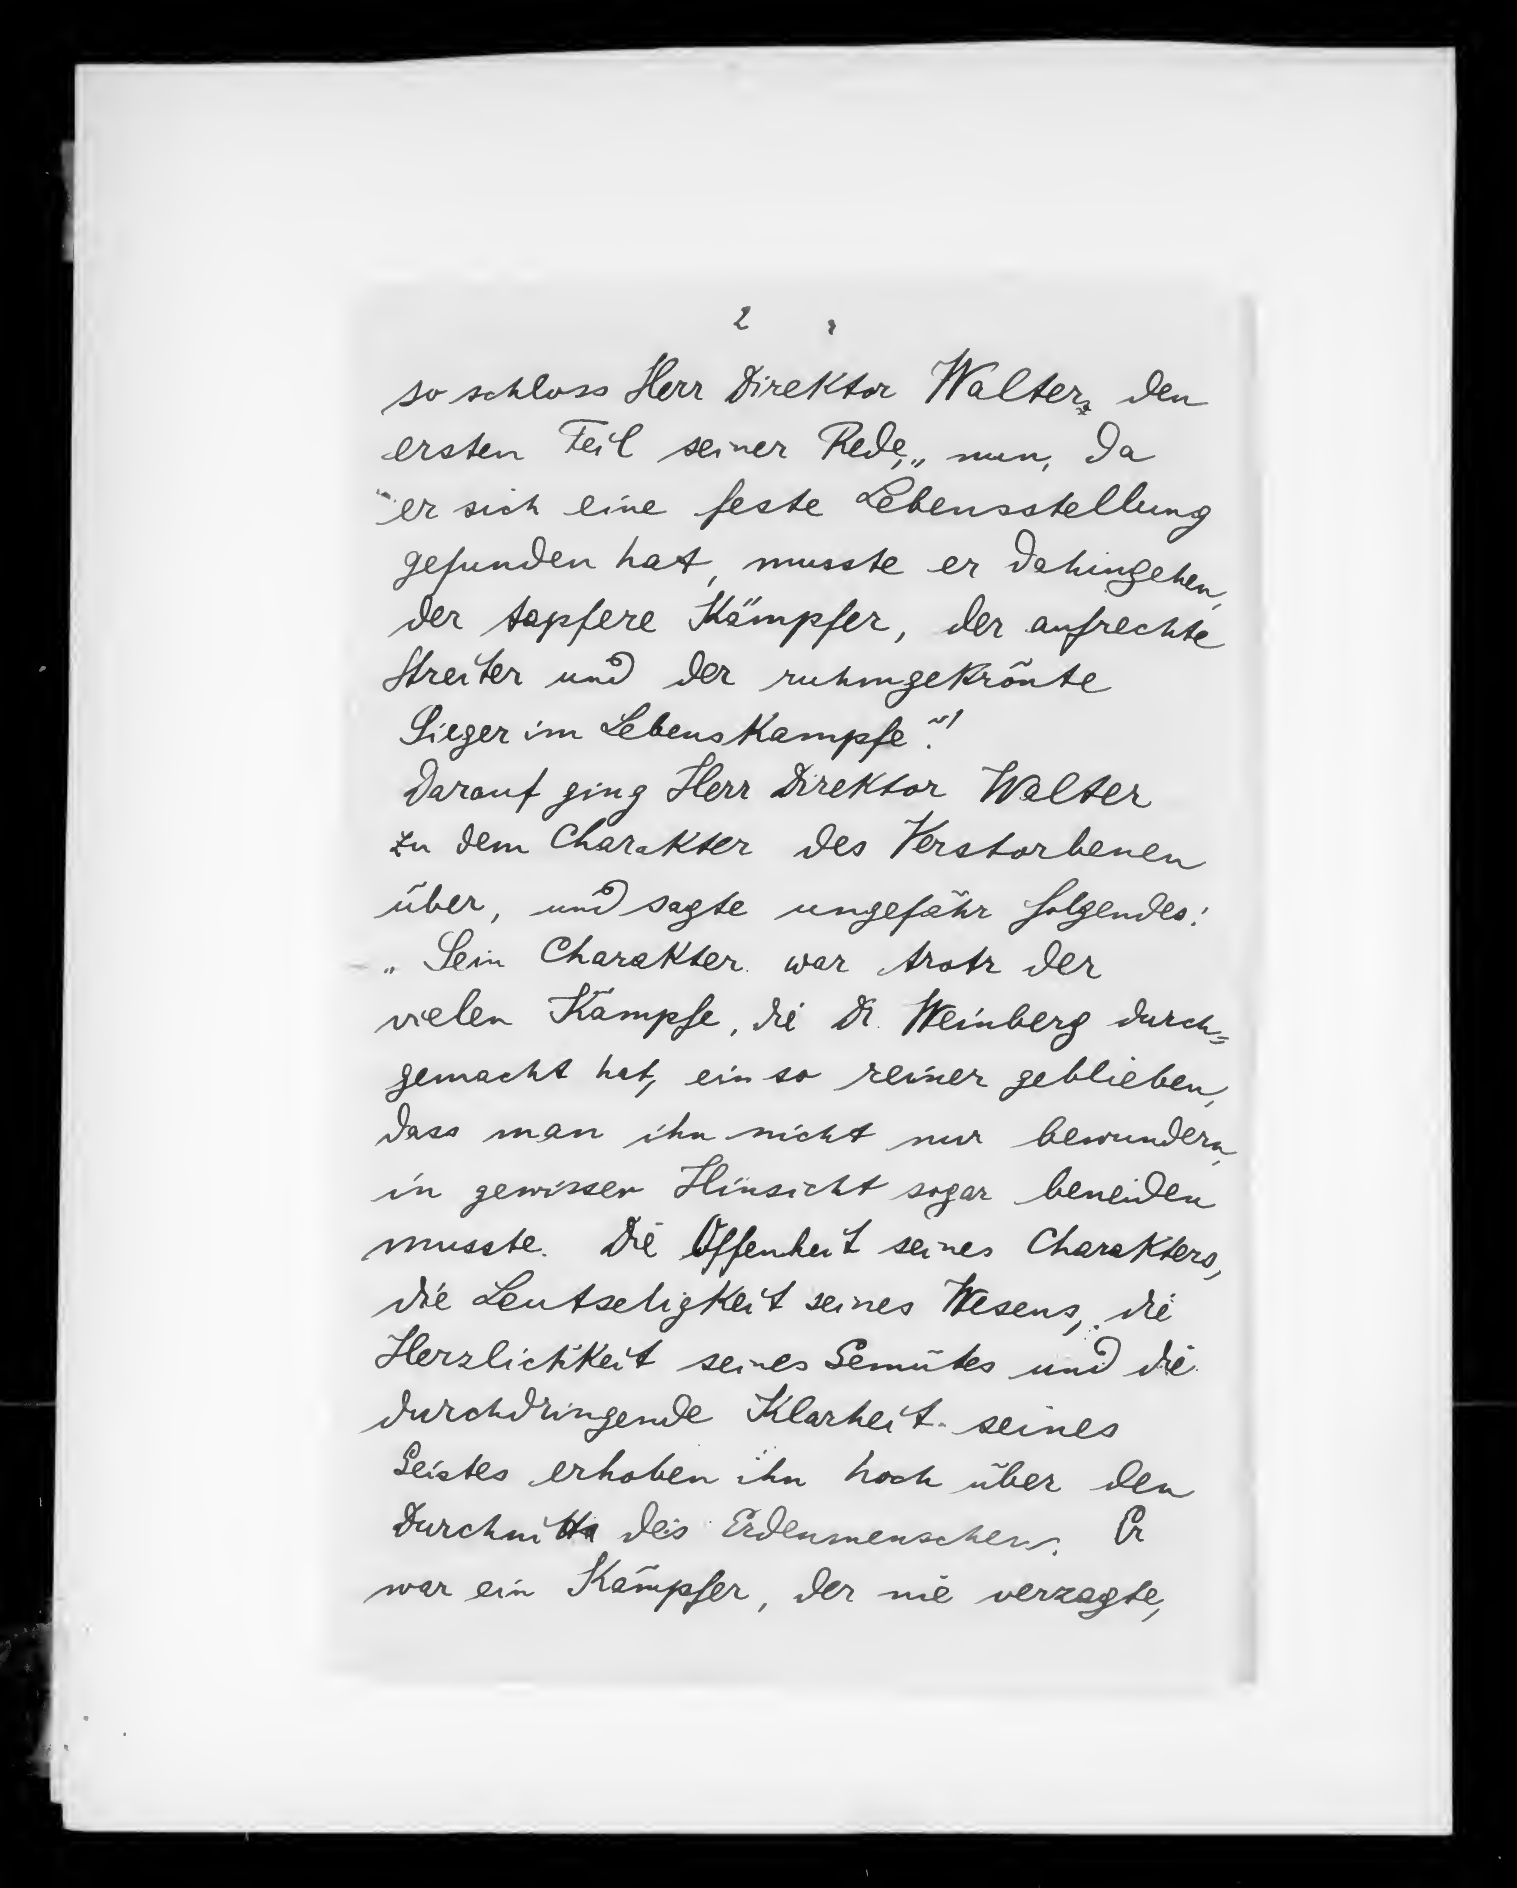 2
so schloss Herr Direktor Walter, den
ersten Teil seiner Rede, „nun, da
er sich eine feste Lebensstellung
gefunden hat, musste er dahingehen,
der tapfere Kämpfer, der aufrechte
Streiter und der ruhmgekrönte
Sieger im Lebenskampfe“!
Darauf ging Herr Direktor Walter
zu dem Charakter des Verstorbenen
über, und sagte ungefähr folgendes:
„Sein Charakter war trotz der
vielen Kämpfe, die Dr. Weinberg durch=
gemacht hat, ein so reiner geblieben,
dass man ihn nicht nur bewundern,
in gewisser Hinsicht sogar beneiden
musste. Die Offenheit seines Charakters,
die Leutseligkeit seines Wesens, die
Herzlichkeit seines Gemütes und die
durchdringende Klarheit seines
Geistes erhoben ihn hoch über den
des Erdenmenschen. Er
war ein Kämpfer, der nie verzagte,